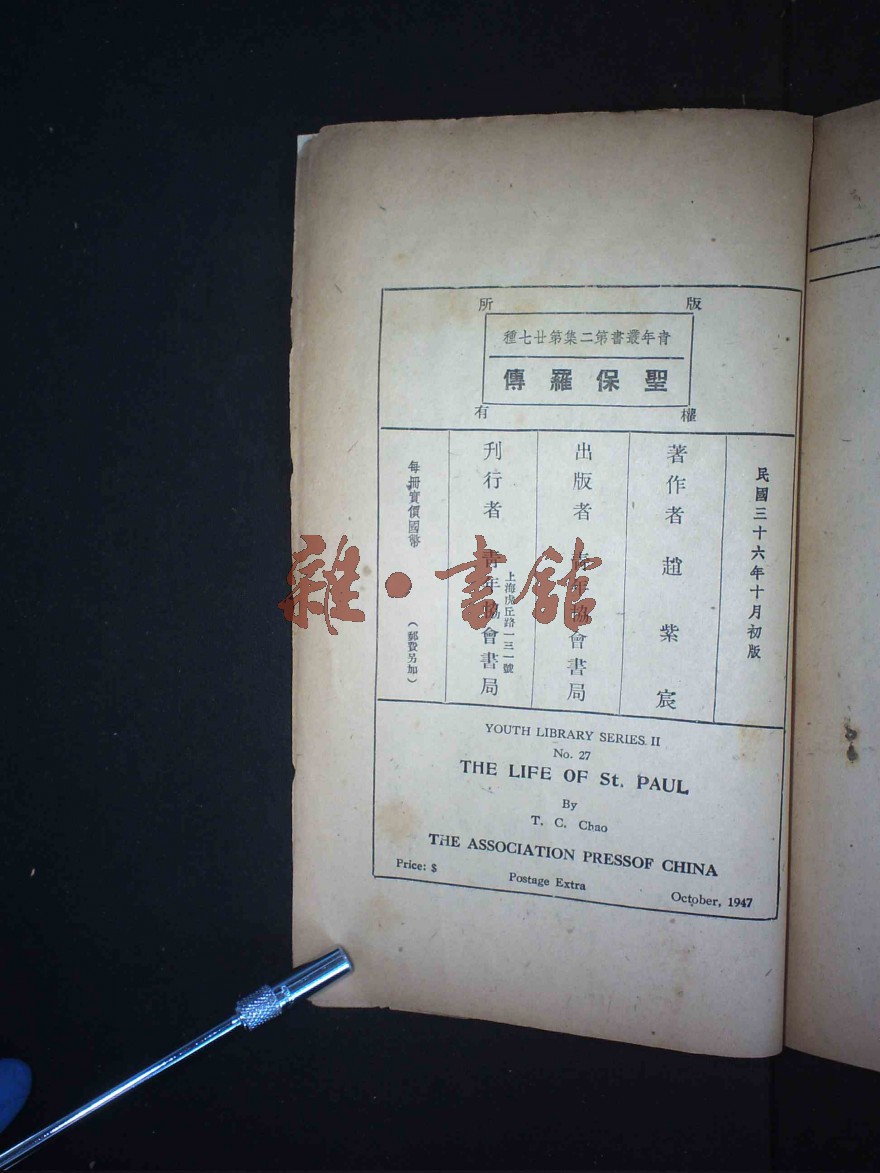 版
所
青年叢書第二集第廿七種
聖保羅傳
權
有
民國三十六年十月初版
著作者 趙紫宸
出版者 青年協會書局
上海虎丘路一三一號
刊行者 青年協會書局
每冊實價國幣
(郵費另加)
雜·書館
YOUTH LIBRARY SERIES. II
No. 27
THE LIFE OF St. PAUL
By
T. C. Chao
THE ASSOCIATION PRESSOF CHINA
Price: $
Postage Extra
October, 1947